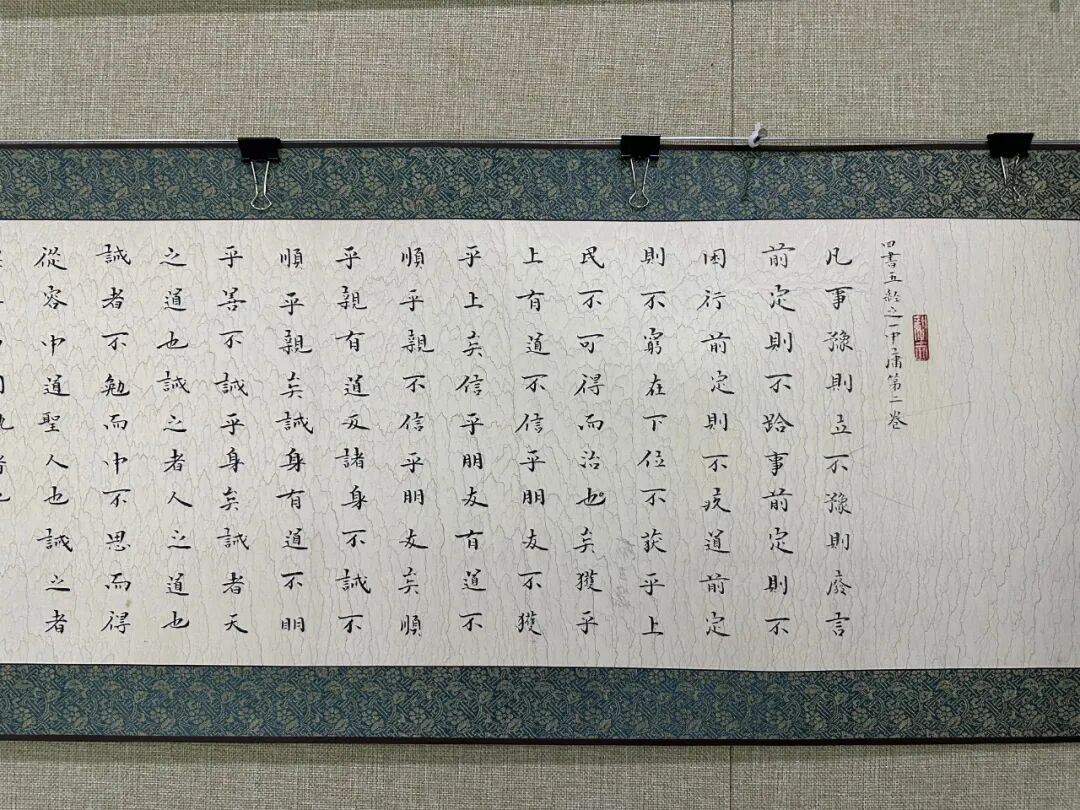 四書五經之一中庸第二卷
凡事豫則立不豫則廢言
前定則不跲事前定則不
困行前定則不疚道前定
則不窮在下位不获乎上
民不可得而治也矣獲乎
上有道不信乎朋友不獲
乎上矣信乎朋友有道不
順乎親不信乎朋友矣順
乎親有道反諸身不誠不
順乎親矣誠身有道不明
乎善不誠乎身矣誠者天
之道也誠之者人之道也
誠者不勉而中不思而得
從容中道聖人也誠之者